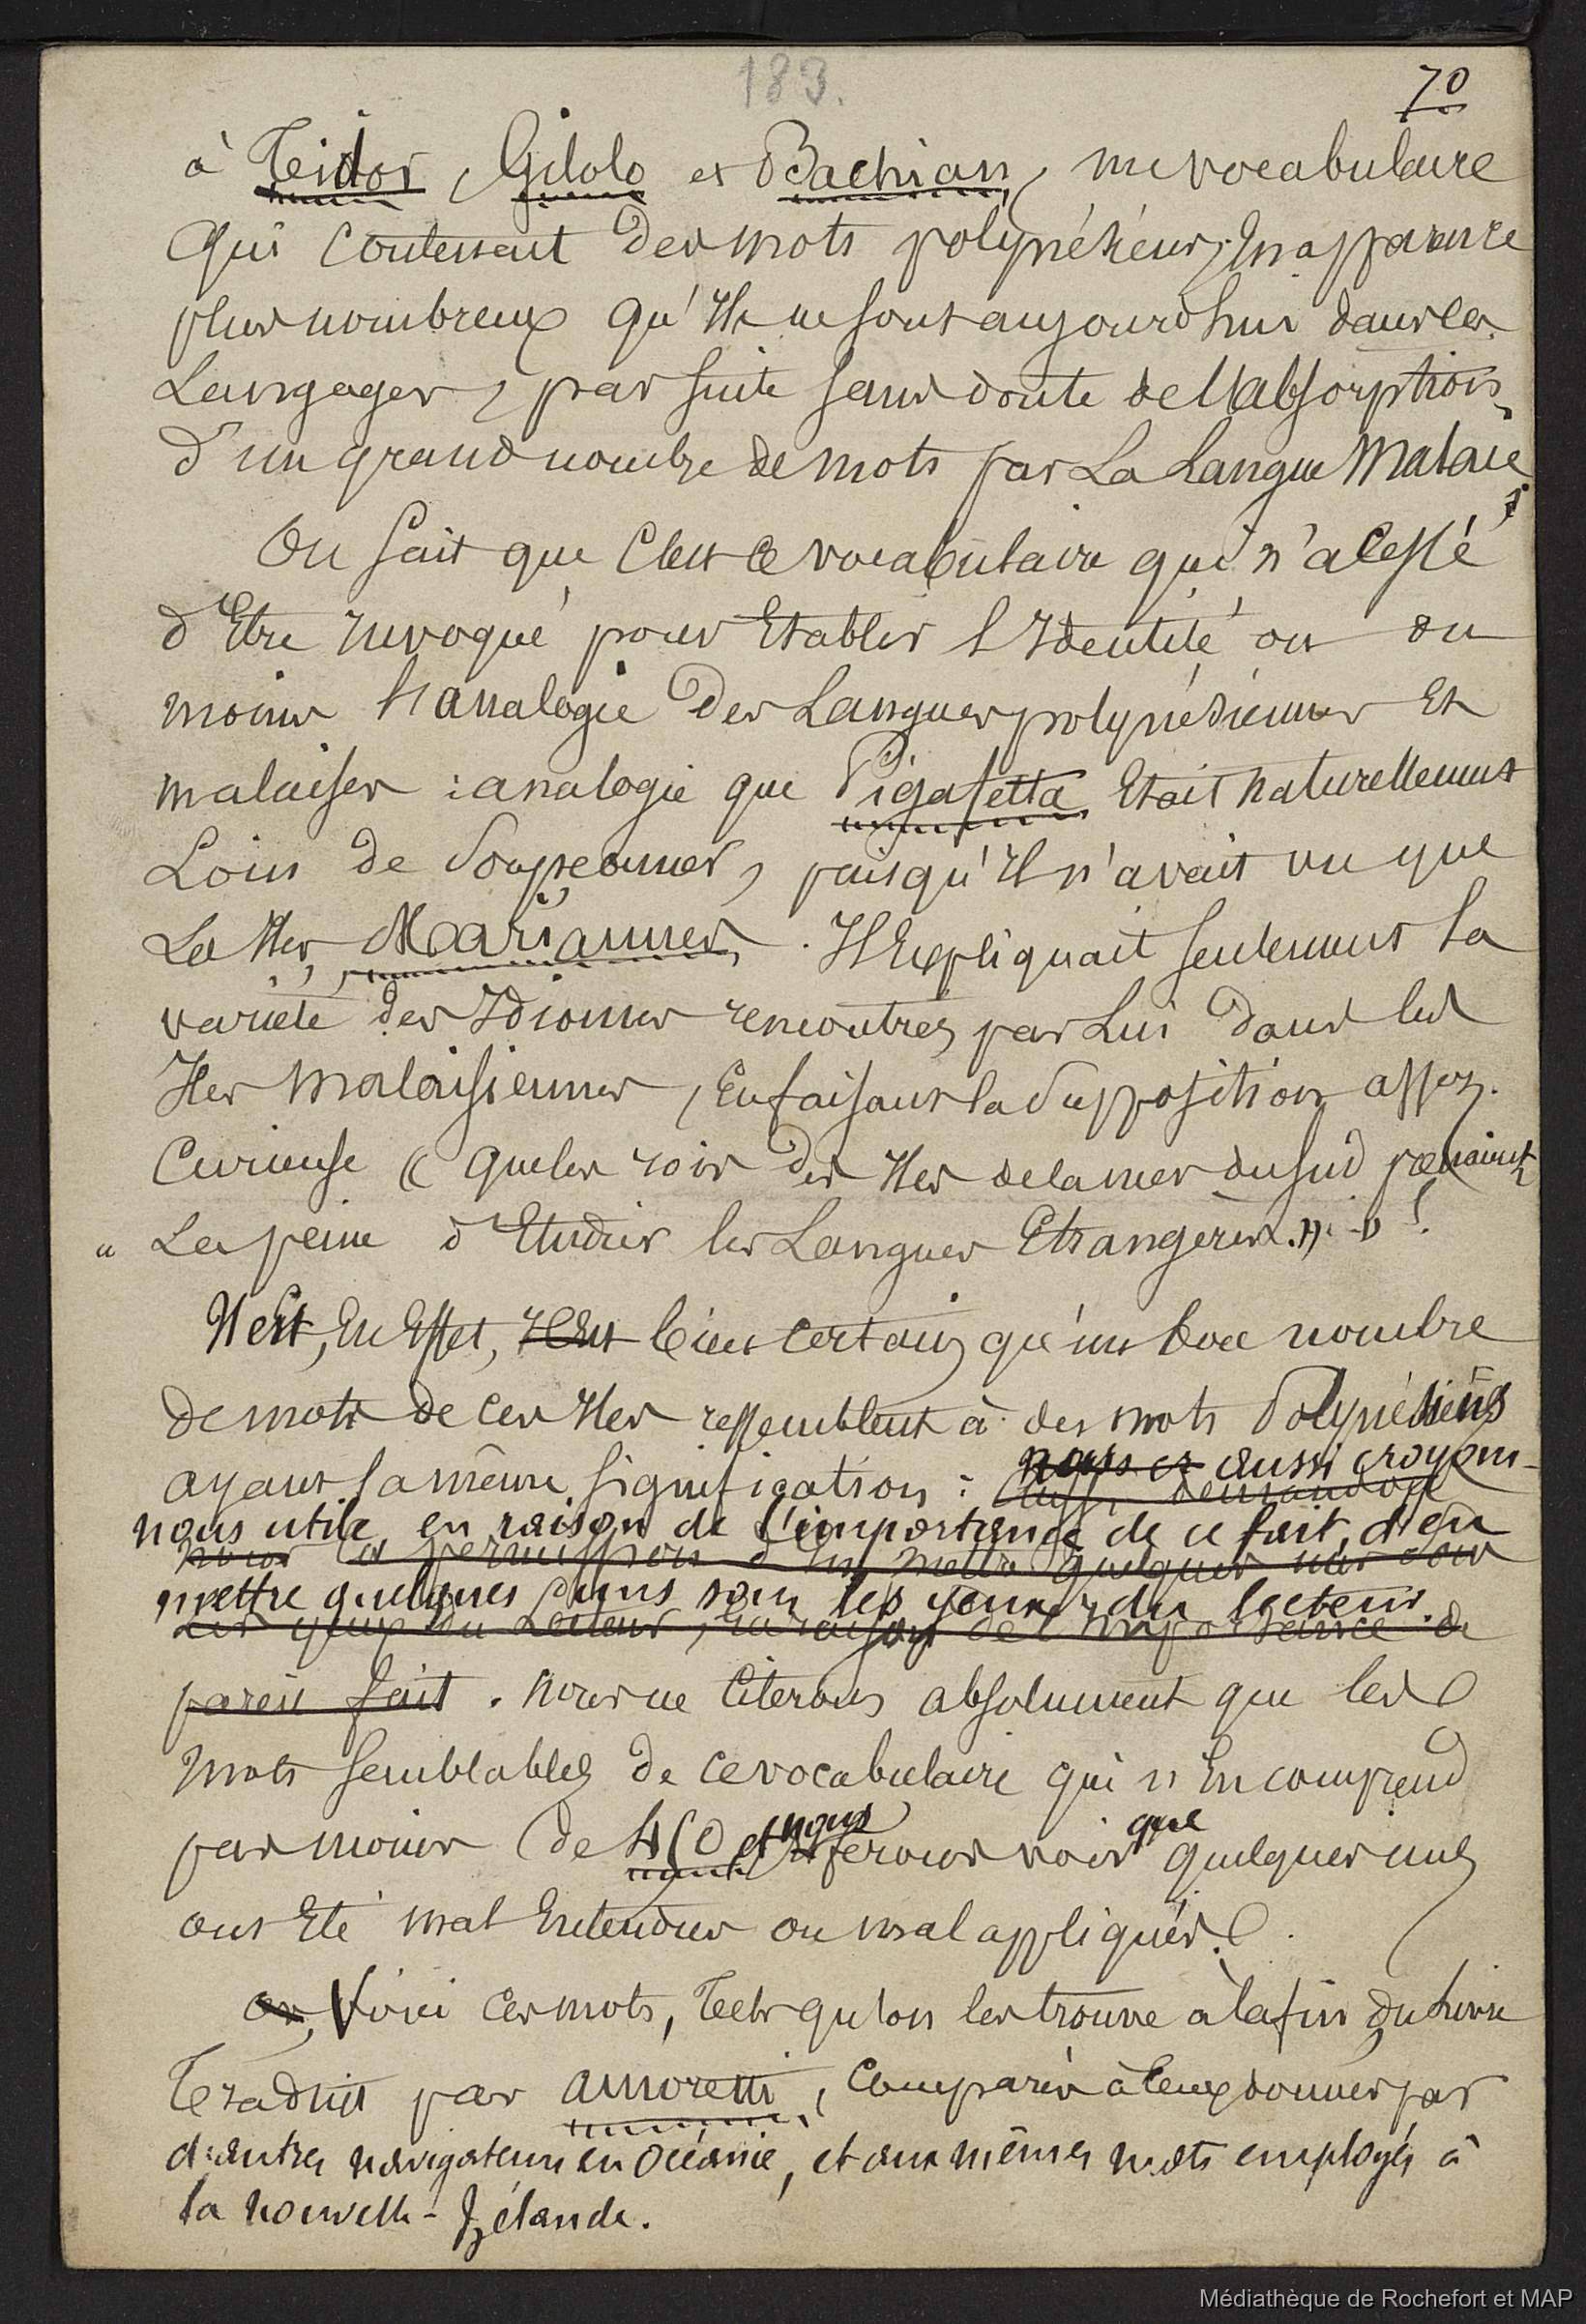 183.
70
à Teidor, Gilolo et Bachian, un vocabulaire
qui contenait des mots polynésiens, en apparence
plus nombreux qu'Ils ne sont aujourd'hui dans les
Langages, par suite sans doute de l'absorption
d'un grand nombre de mots par La Langue Malaie.
On sait que c'est ce vocabulaire qui n'a cessé
d'Etre invoqué pour Etablir l'Identité ou du
moins l'analogie des Langues polynésiennes Et
malaises : analogie que Pigafetta Etait naturellement
Loin de soupçonner, puisqu'Il n'avait vu que
Les Iles Mariannes. Il Expliquait seulement la
variété des Idiomes rencontrés par Lui dans les
Iles malaisiennes, En faisant la supposition assez
Curieuse « que les rois des Iles de la mer du sud prenaient
" La peine d'Etudier les Langues Etrangères. » !
Il est, En Effet, Il Est bien certain qu'un bon nombre
de mots de ces Iles ressemblent à des mots Polynésiens
nous et aussi croyons-
ayant la même signification : Aussi demandons
nous utile, en raison de l'importance de ce fait, d'en
nous la permission d'En mettre quelques uns sous
mettre quelques uns sous les yeux du lecteur.
Les yeux du Lecteur, En raison de l'Importance de
pareil fait. Nous ne citerons absolument que les
mots semblables de ce vocabulaire qui n'En comprend
pas moins de 450 et nous ferons voir que quelques uns
ont Eté mal Entendus ou mal appliqués.
Or, Voici ces mots, Tels qu'on les trouve à la fin du Livre
Traduit par Amoretti, Comparés à Ceux donnés par
d'autres navigateurs en Océanie, et aux mêmes mots employés à
la Nouvelle-Zélande.
Médiathèque de Rochefort et MAP